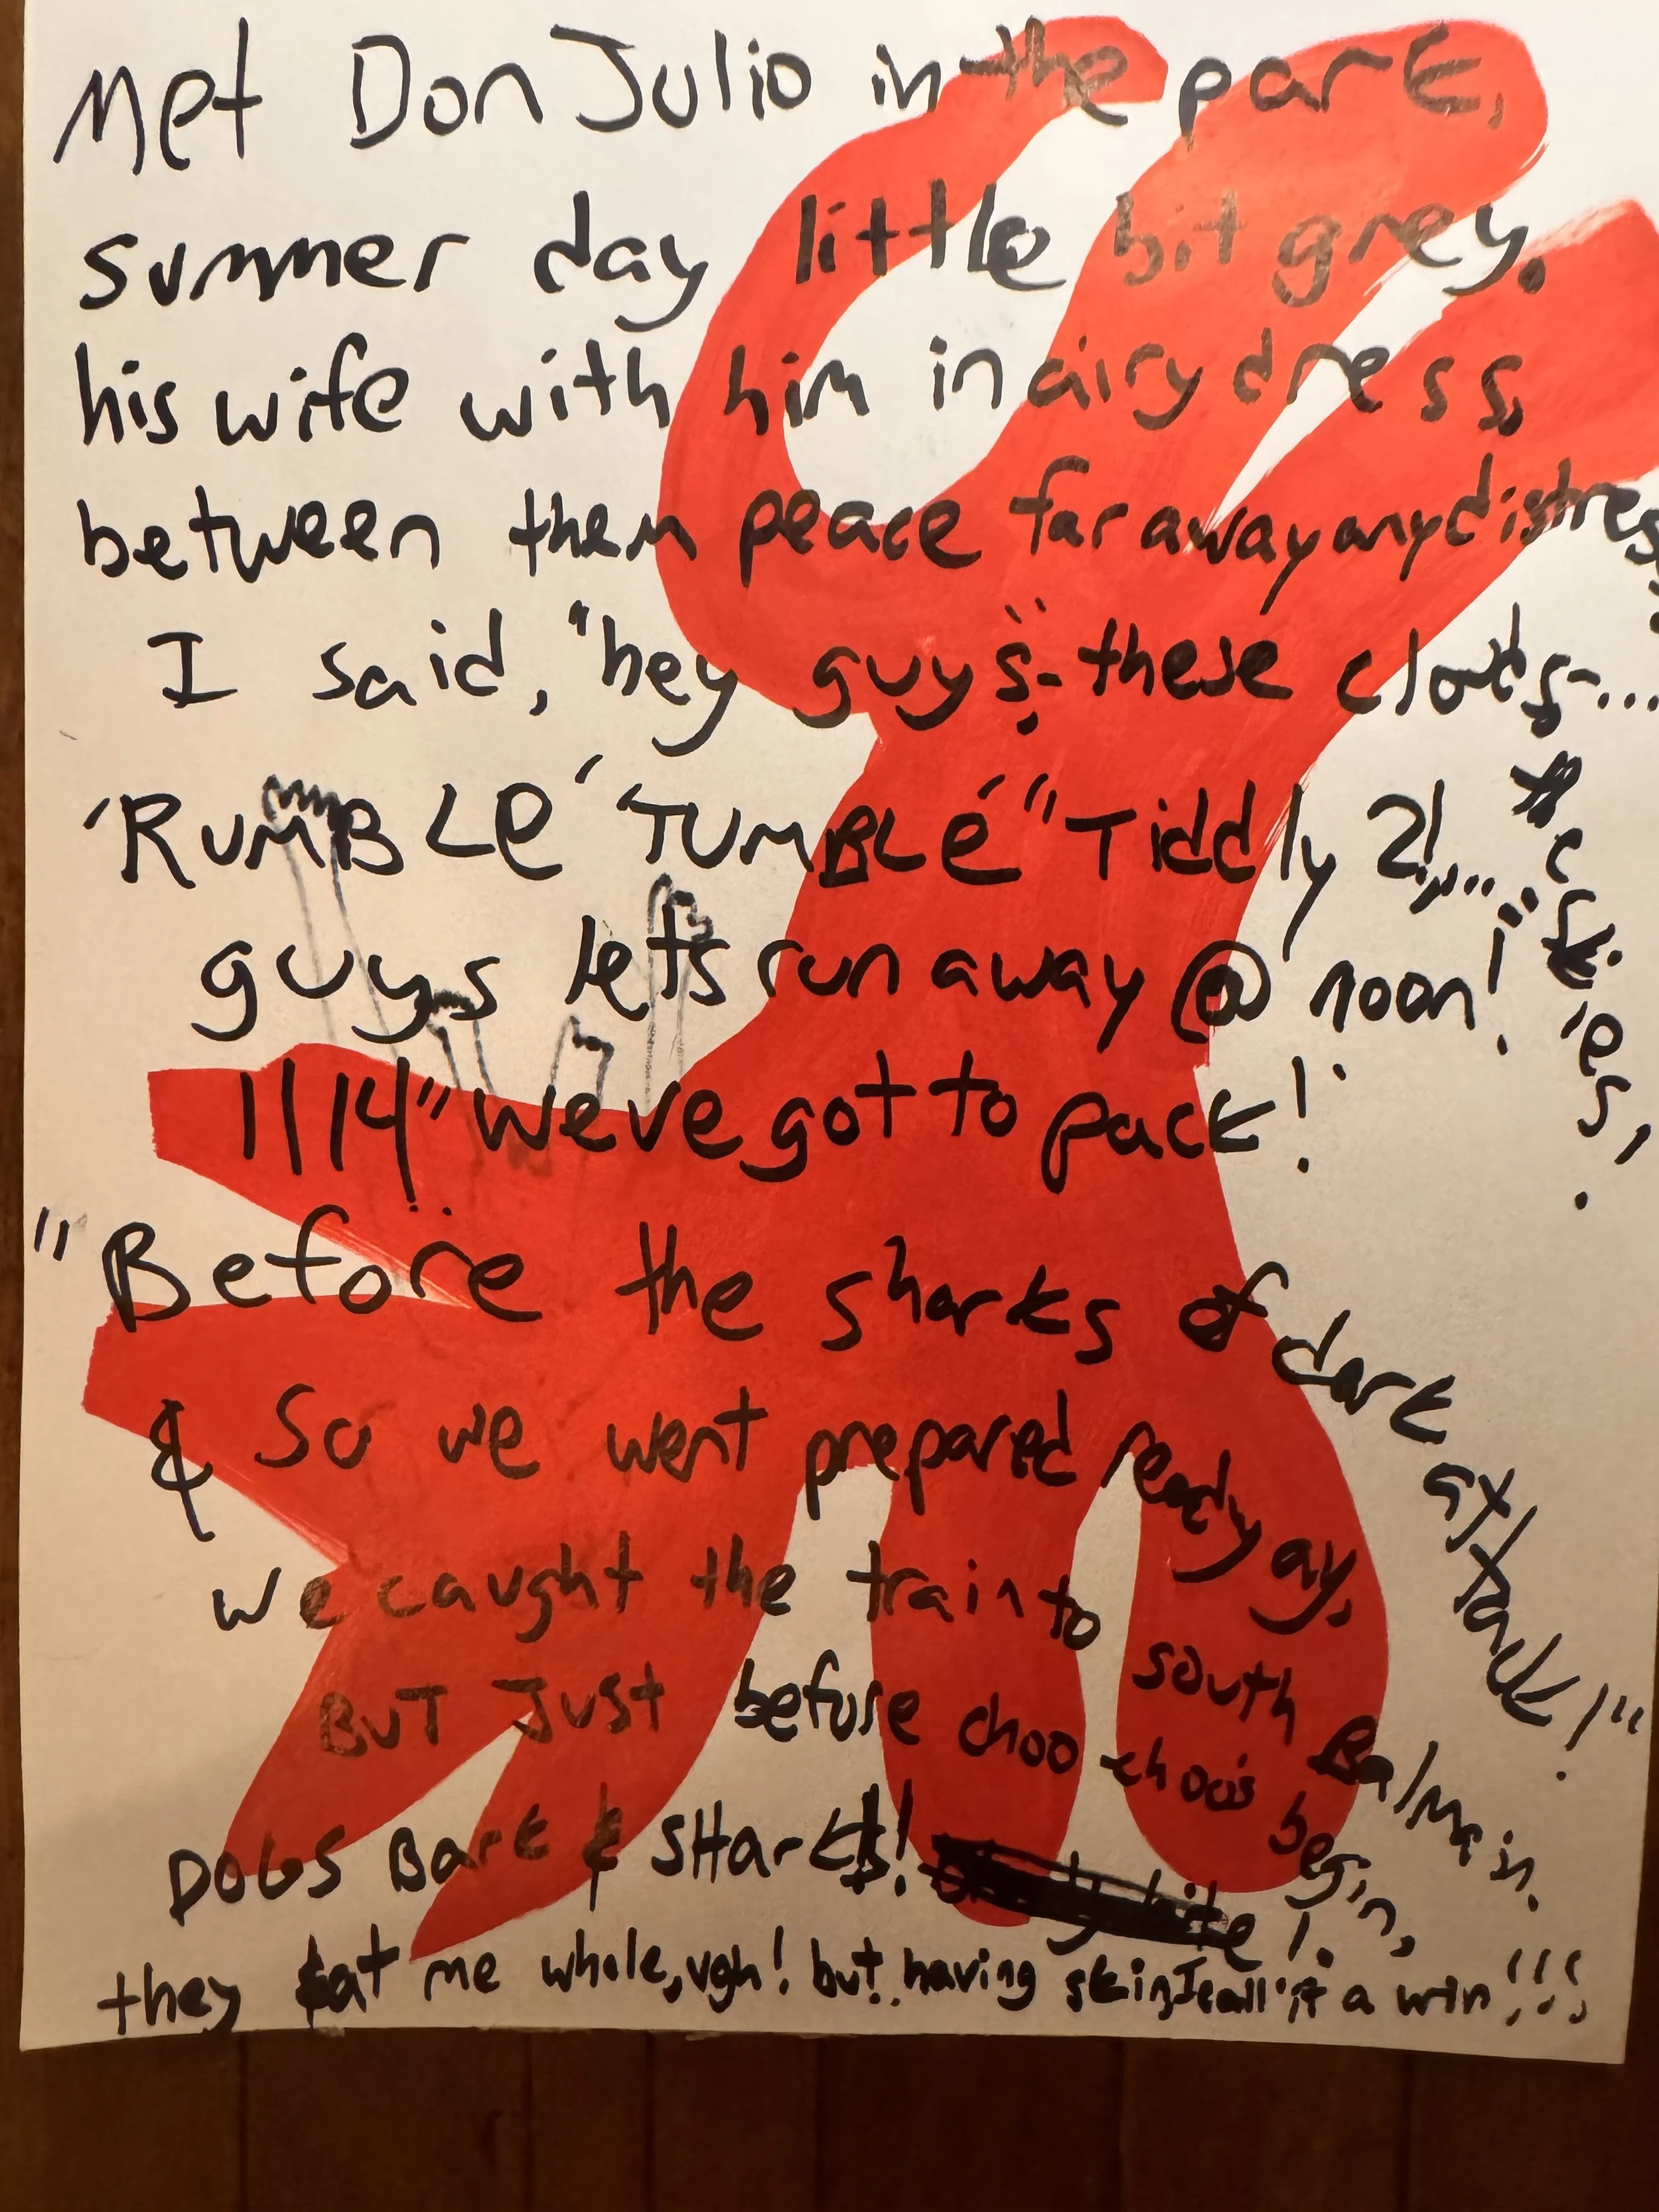 Met Don Julio in the park,
summer day little bit grey.
his wife with him in airy dress,
between them peace far away any distress.
I said, "hey guys- these clouds-...
& skies,
'RUMBLE' 'TUMBLE'" Tiddly 2!,...
guys let's run away @ noon!"
"we've got to pack!
"Before the sharks of dark attack!"
& So we went prepared ready ay,
we caught the train to south Balmain.
BUT JUST before choo choo's begin,
DOGS Bark & SHarks!
they eat me whole, ugh! but having skin, I call it a win!!!